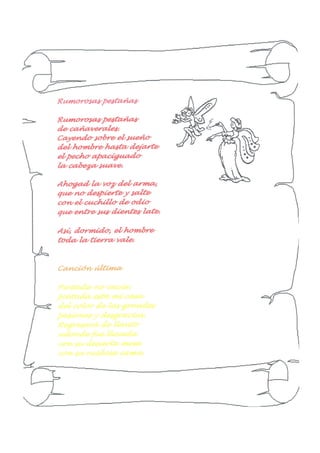 Rumorosas pestañas
Rumorosas pestañas
de cañaverales.
Cayendo sobre el sueño
del hombre hasta dejarle
el pecho apaciguado
la cabeza suave.
Ahogad la voz del arma,
que no despierte y salte
con el cuchillo de odio
que entre sus dientes late.
Así, dormido, el hombre
toda la tierra vale.
Canción última
Pintada no vacía:
pintada está mi casa
del color de las grandes
pasiones y desgracias.
Regresará del llanto
adonde fue llevada
con su desierta mesa
con su ruidosa cama.